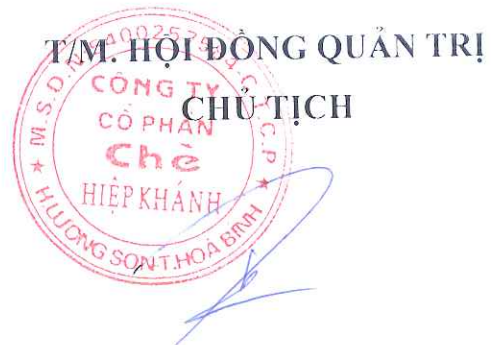 T/M. HỘI ĐỒNG QUẢN TRỊ
CHỦ TỊCH
CÔNG TY
CỔ PHẦN
Chè
HIỆP KHÁNH
H.LƯƠNG SƠN T.HOÀ BÌNH